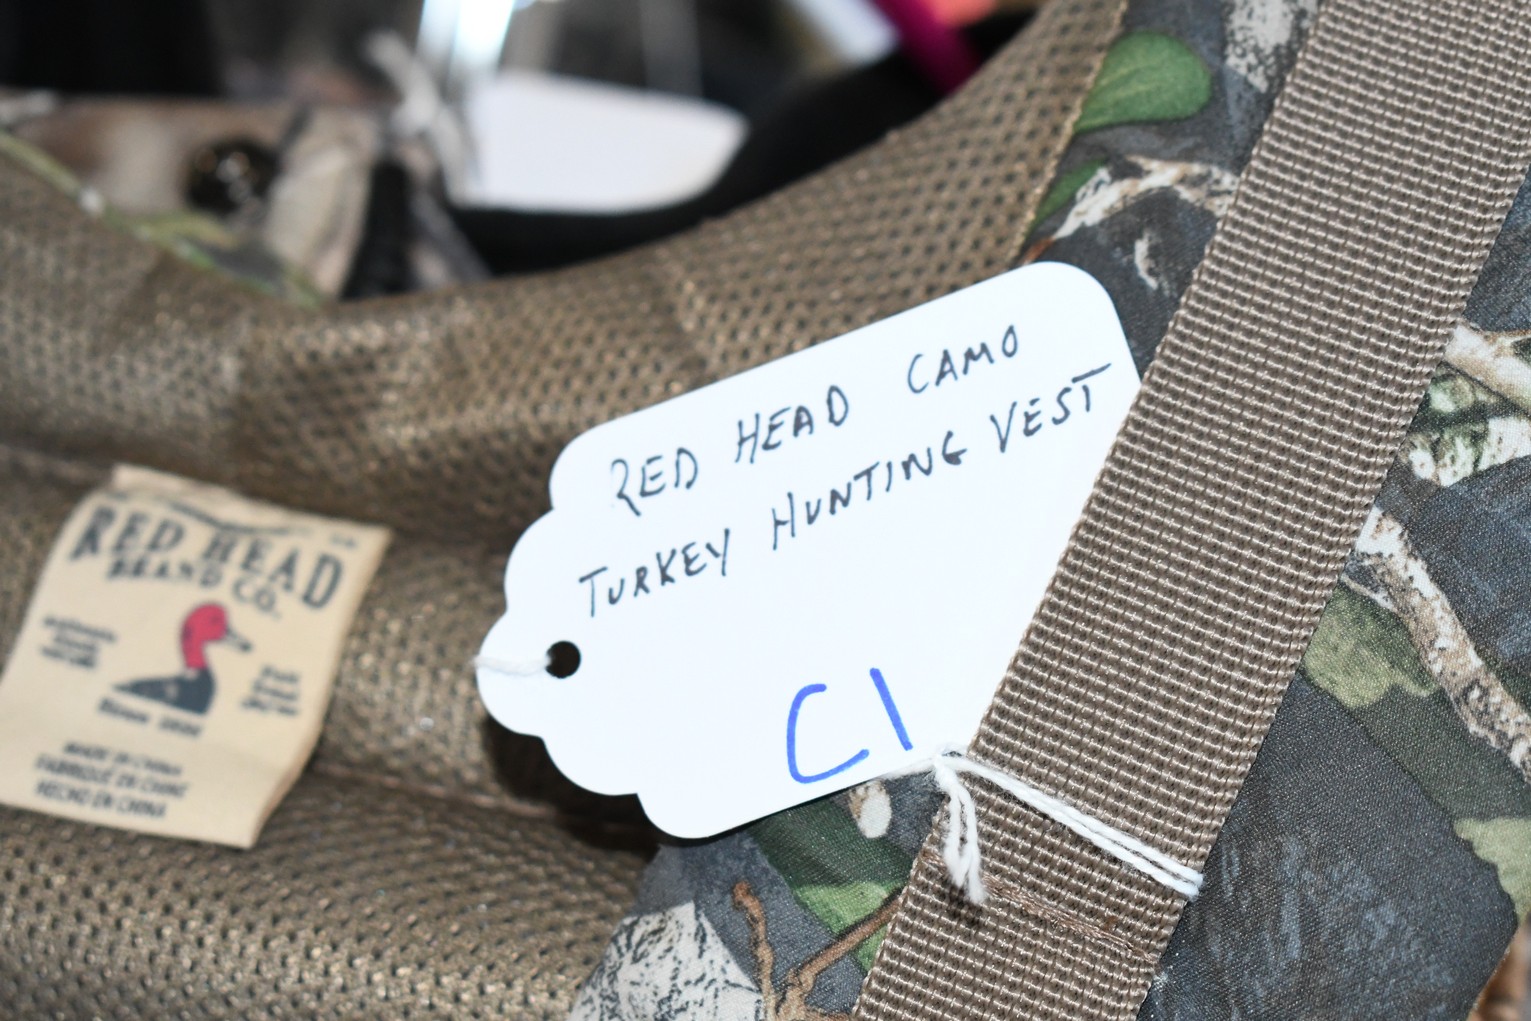 RED HEAD CAMO
TURKEY HUNTING VEST
C1
RED HEAD
BRAND CO.
SINCE 1856
MADE IN CHINA
FABRIQUÉ EN CHINE
HECHO EN CHINA